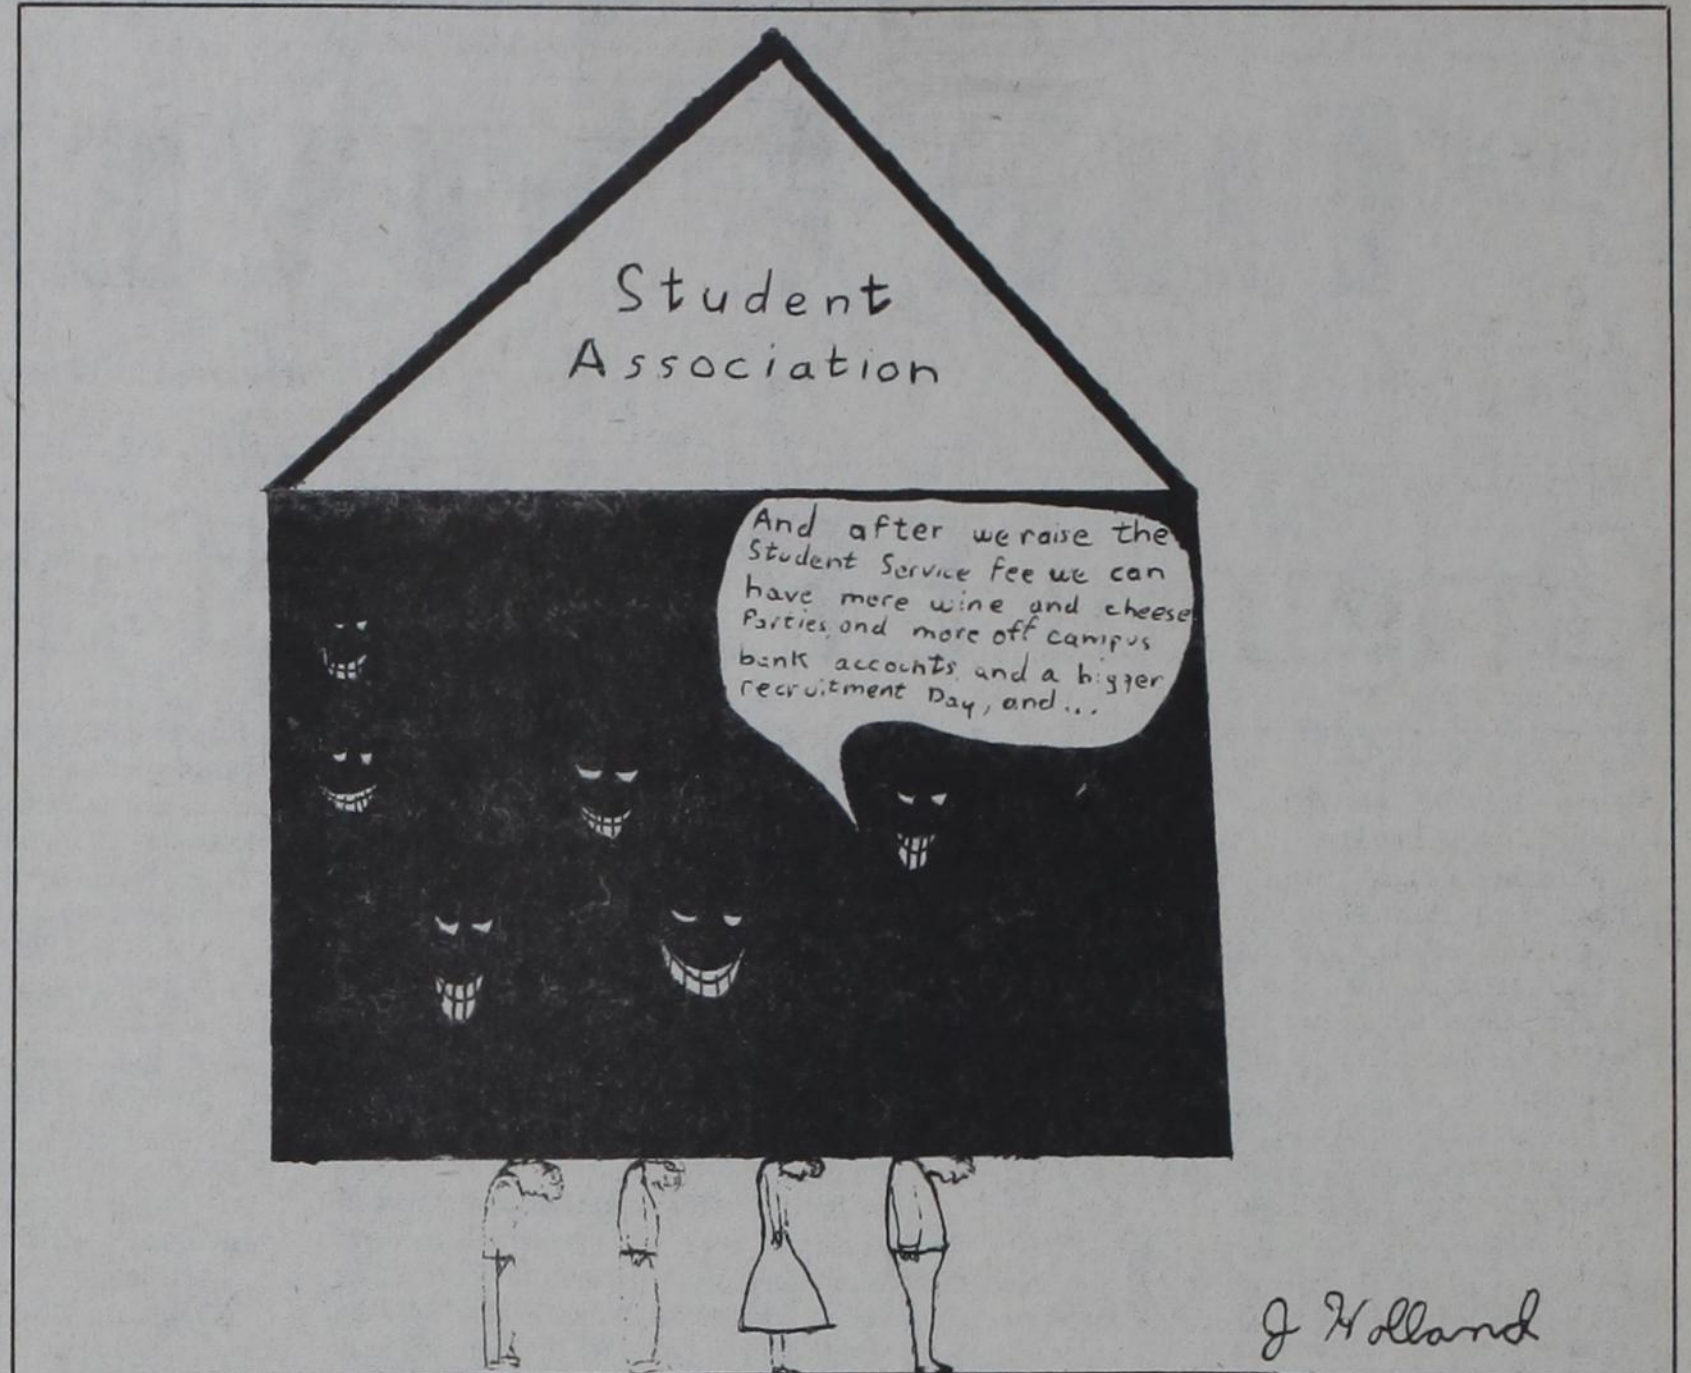 Student
Association
And after we raise the
Student Service fee we can
have more wine and cheese
Parties, and more off campus
bank accounts, and a bigger
recruitment Day, and...
J Holland